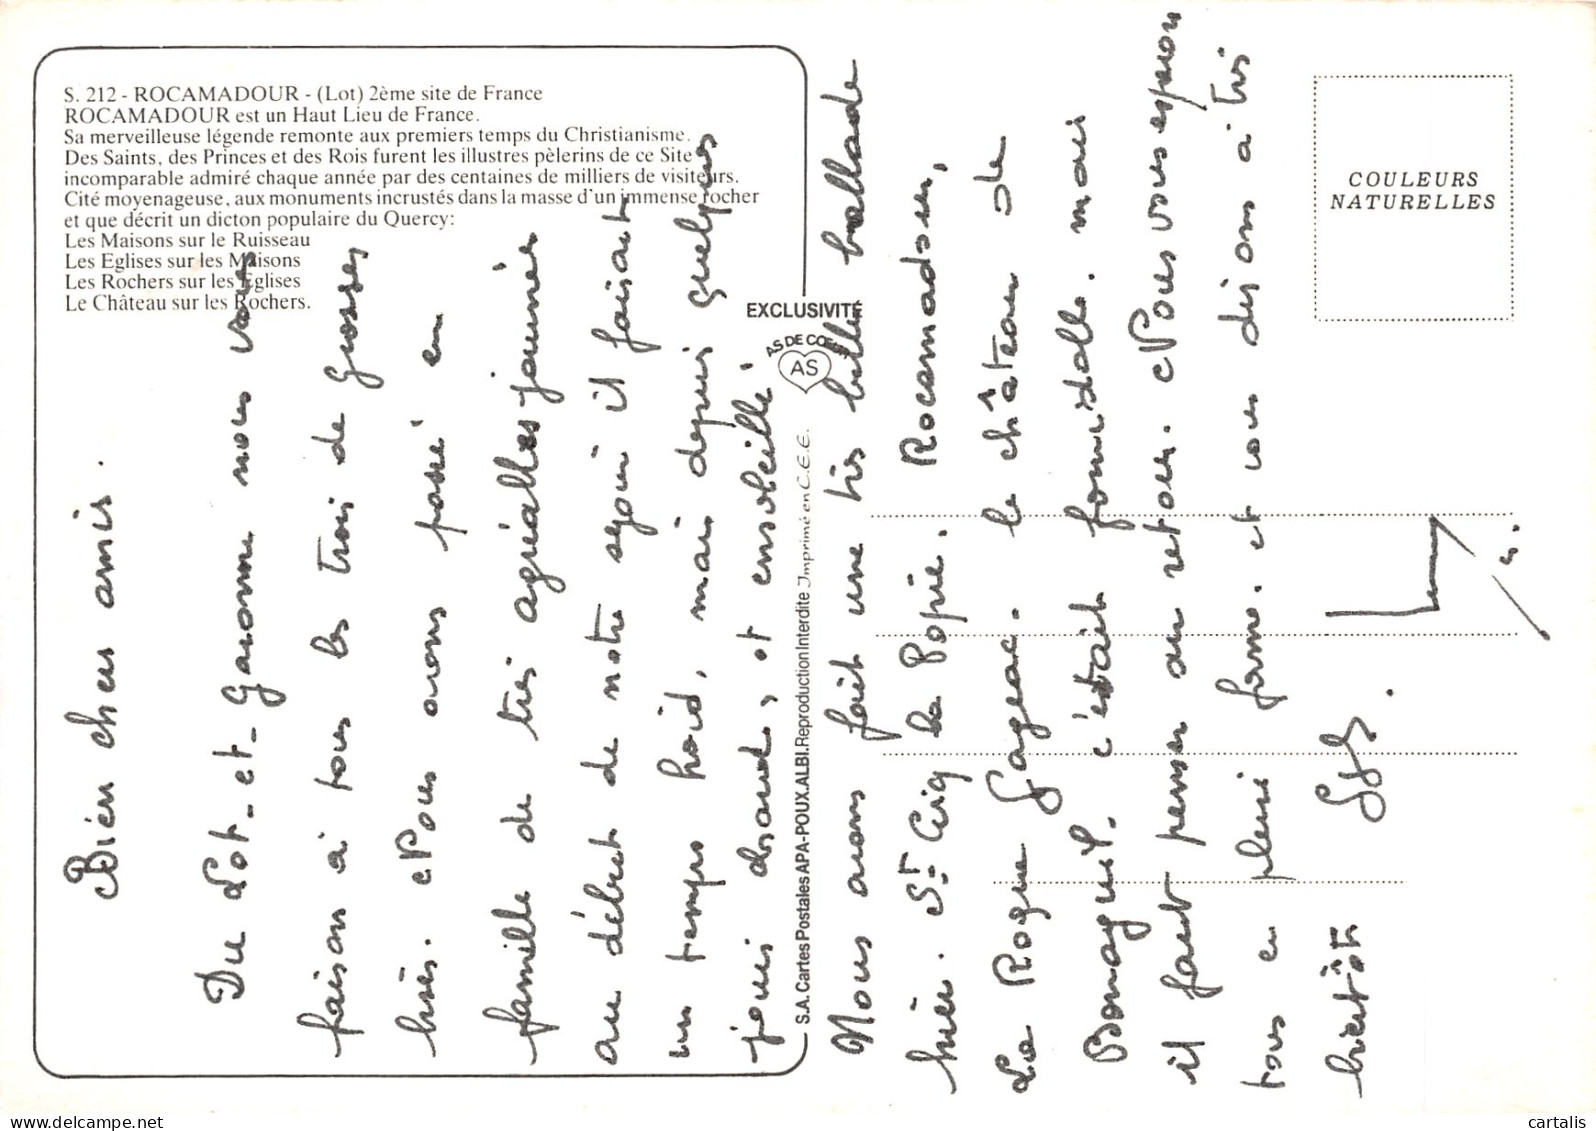 S. 212 - ROCAMADOUR - (Lot) 2ème site de France
ROCAMADOUR est un Haut Lieu de France.
Sa merveilleuse légende remonte aux premiers temps du Christianisme.
Des Saints, des Princes et des Rois furent les illustres pèlerins de ce Site
incomparable admiré chaque année par des centaines de milliers de visiteurs.
Cité moyenageuse, aux monuments incrustés dans la masse d'un immense rocher
et que décrit un dicton populaire du Quercy:
Les Maisons sur le Ruisseau
Les Eglises sur les Maisons
Les Rochers sur les Eglises
Le Château sur les Rochers.
EXCLUSIVITÉ
AS DE COEUR
AS
S.A. Cartes Postales APA-POUX.ALBI. Reproduction Interdite Imprimé en C.E.E.
COULEURS
NATURELLES
Bien chers amis.
Du Lot-et-Garonne nous vous
faison à tous les trois de grosses
bises. Nous avons passé en
famille de très agréables journées
au début de notre sejour il faisait
un temps froid, mais depuis quelques
jours chaud, et ensoleillé.
Nous avons fait une très belle ballade
hier. St Cirq la Popie. Rocamadour,
La Roque Gageac. le château de
Bonaguil. c'était formidable. mais
il faut penser au retour. Nous vous esperons
tous en pleine forme. et vous disons à très
bientôt
delcampe.net
cartalis